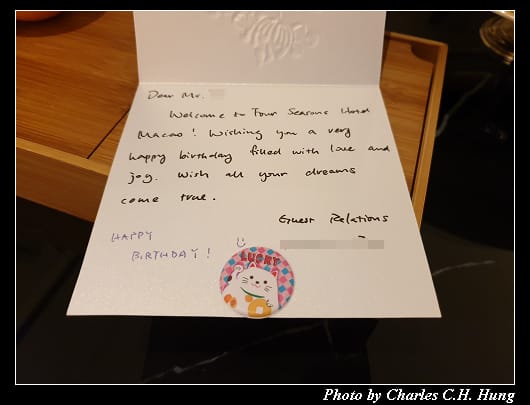 Dear Mr.
Welcome to Four Seasons Hotel
Macao! Wishing you a very
happy birthday filled with love and
joy. Wish all your dreams
come true.
Guest Relations
HAPPY
BIRTHDAY!
LUCKY
Photo by Charles C.H. Hung